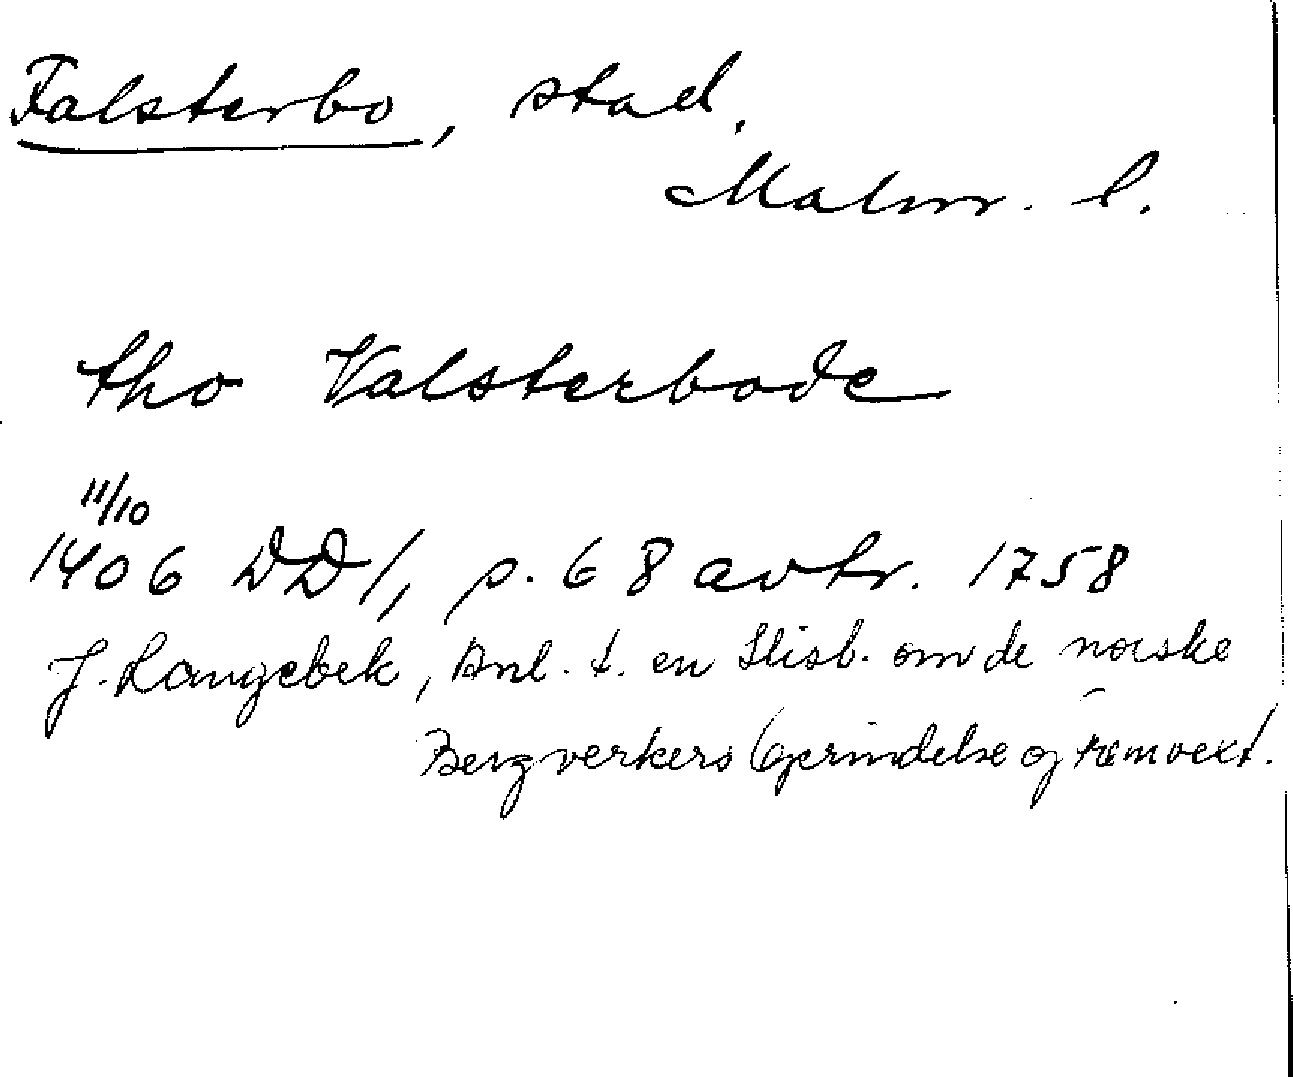 Falsterbo, stad.
Malm. l.
tho Valsterbode
11/10
1406 DD 1, s. 68 avtr. 1758
J. Langebek, Anl. t. en Hist. om de norske
Bergverkers Oprindelse og Fremvext.